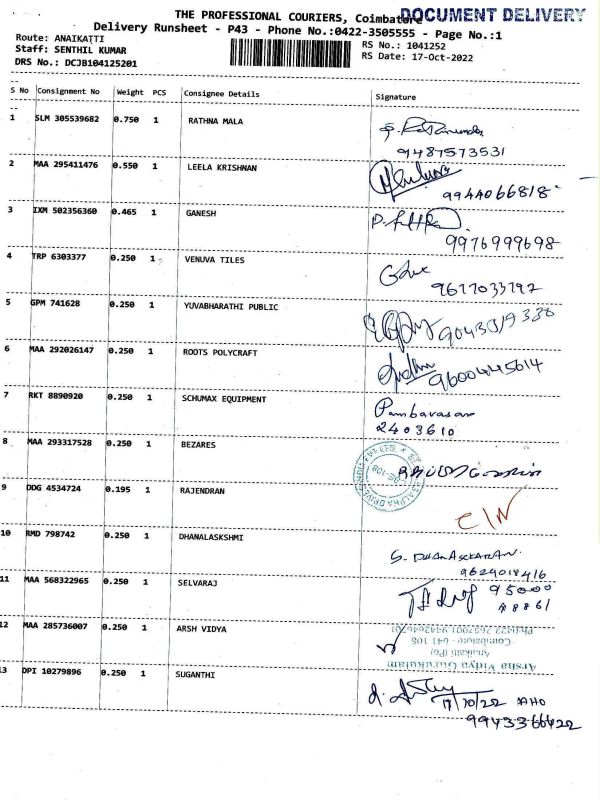 THE PROFESSIONAL COURIERS, Coimbatore
DOCUMENT DELIVERY
Delivery Runsheet - P43 - Phone No.:0422-3505555 - Page No.:1
Route: ANAIKATTI
RS No.: 1041252
Staff: SENTHIL KUMAR
RS Date: 17-Oct-2022
DRS No.: DCJB104125201
S No Consignment No Weight PCS Consignee Details Signature
1 SLM 305539682 0.750 1 RATHNA MALA
9487573531
2 MAA 295411476 0.550 1 LEELA KRISHNAN
9944066818
3 IXM 502356360 0.465 1 GANESH
9976999698
4 TRP 6303377 0.250 1 VENUVA TILES
5 GPM 741628 0.250 1 YUVABHARATHI PUBLIC
6 MAA 292026147 0.250 1 ROOTS POLYCRAFT
9600445614
7 RKT 8890920 0.250 1 SCHUMAX EQUIPMENT
Pambavasan
2403610
8 MAA 293317528 0.250 1 BEZARES
9 DDG 4534724 0.195 1 RAJENDRAN
10 RMD 798742 0.250 1 DHANALASKSHMI
S. DHANASEKARAN.
11 MAA 568322965 0.250 1 SELVARAJ
95000
12 MAA 285736007 0.250 1 ARSH VIDYA
Coimbatore - 641 108
Anaikatti (PO)
Arsha Vidya Gurukulam
13 DPI 10279896 0.250 1 SUGANTHI
17/10/22
9943366422